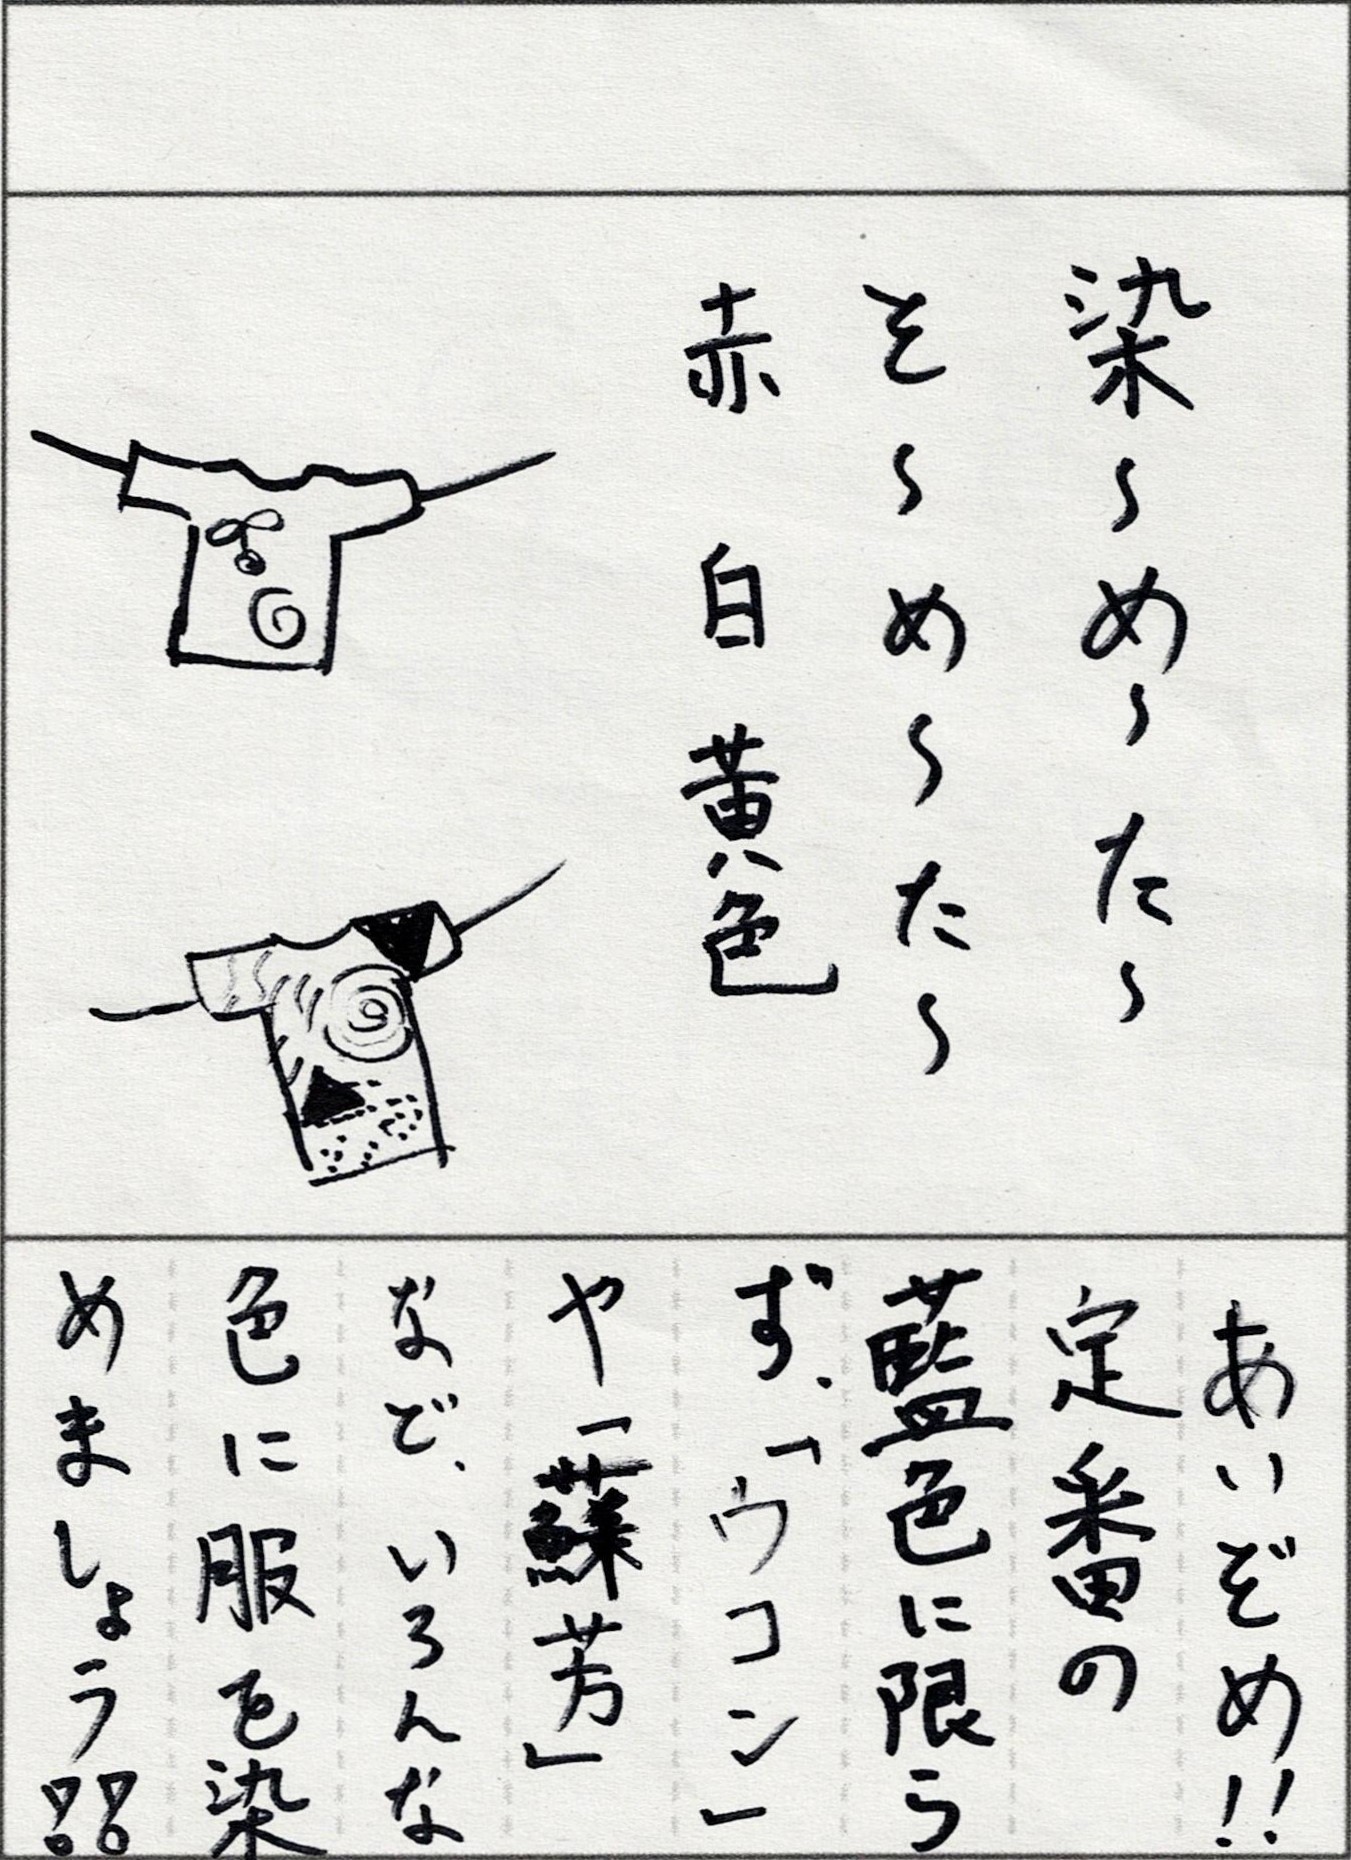 染〜め〜た〜
そ〜め〜た〜
赤 白 黄色
あいぞめ!!
定番の
藍色に限ら
ず、「ウコン」
や「蘇芳」
など、いろんな
色に服を染
めましょう!!